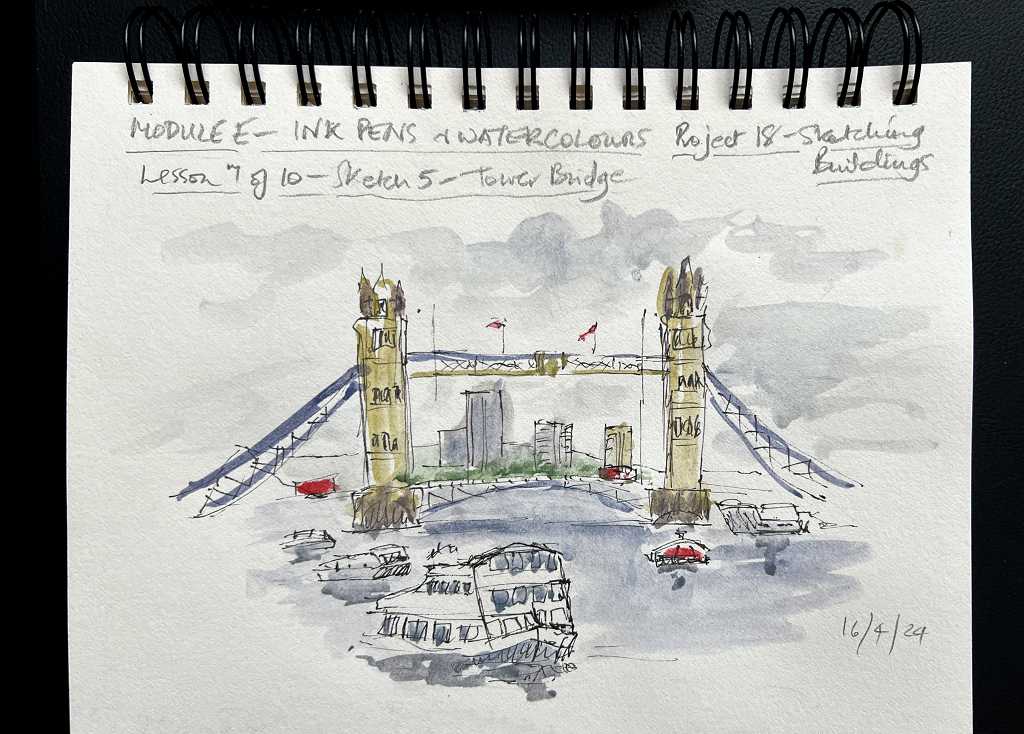 MODULE E - INK PENS & WATERCOLOURS Project 18 - Sketching
Buildings
Lesson 7 of 10 - Sketch 5 - Tower Bridge
16/4/24